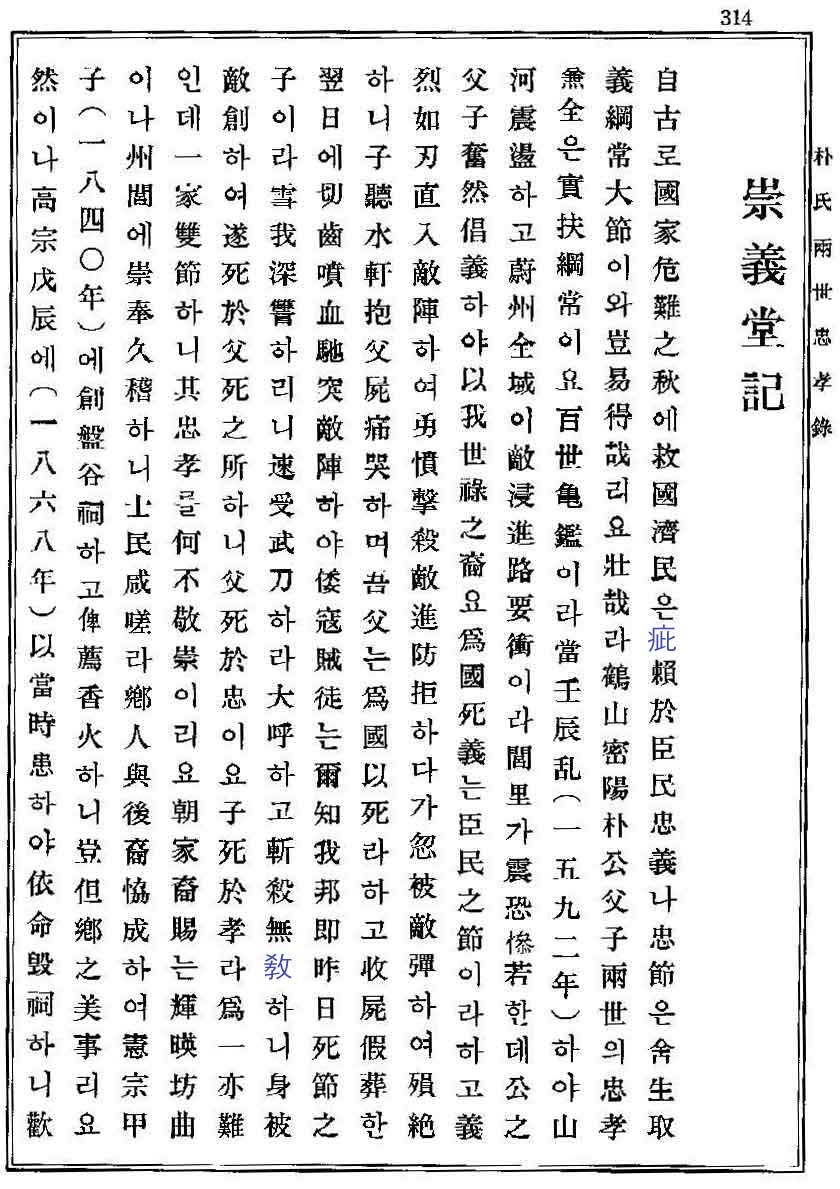 314
朴氏兩世忠孝錄
崇義堂記
自古로國家危難之秋에救國濟民은疵賴於臣民忠義나忠節은舍生取
義綱常大節이와豈易得哉리요壯哉라鶴山密陽朴公父子兩世의忠孝
兼全은實扶綱常이요百世亀鑑이라當壬辰乱(一五九二年)하야山
河震盪하고蔚州全域이敵浸進路要衝이라閭里가震恐慘若한데公之
父子奮然倡義하야以我世祿之裔요爲國死義는臣民之節이라하고義
烈如刃直入敵陣하여勇憤擊殺敵進防拒하다가忽被敵彈하여殞絶
하니子聽水軒抱父屍痛哭하며吾父는爲國以死라하고收屍假葬한
翌日에切齒噴血馳突敵陣하야倭寇賊徒는爾知我邦即昨日死節之
子이라雪我深讐하리니速受武刀하라大呼하고斬殺無敎하니身被
敵創하여遂死於父死之所하니父死於忠이요子死於孝라爲一亦難
인데一家雙節하니其忠孝를何不敬崇이리요朝家旌賜는輝暎坊曲
이나州閭에崇奉久稽하니士民咸嗟라鄕人與後裔協成하여憲宗甲
子(一八四〇年)에創盤谷祠하고俾薦香火하니豈但鄕之美事리요
然이나高宗戊辰에(一八六八年)以當時患하야依命毁祠하니歡